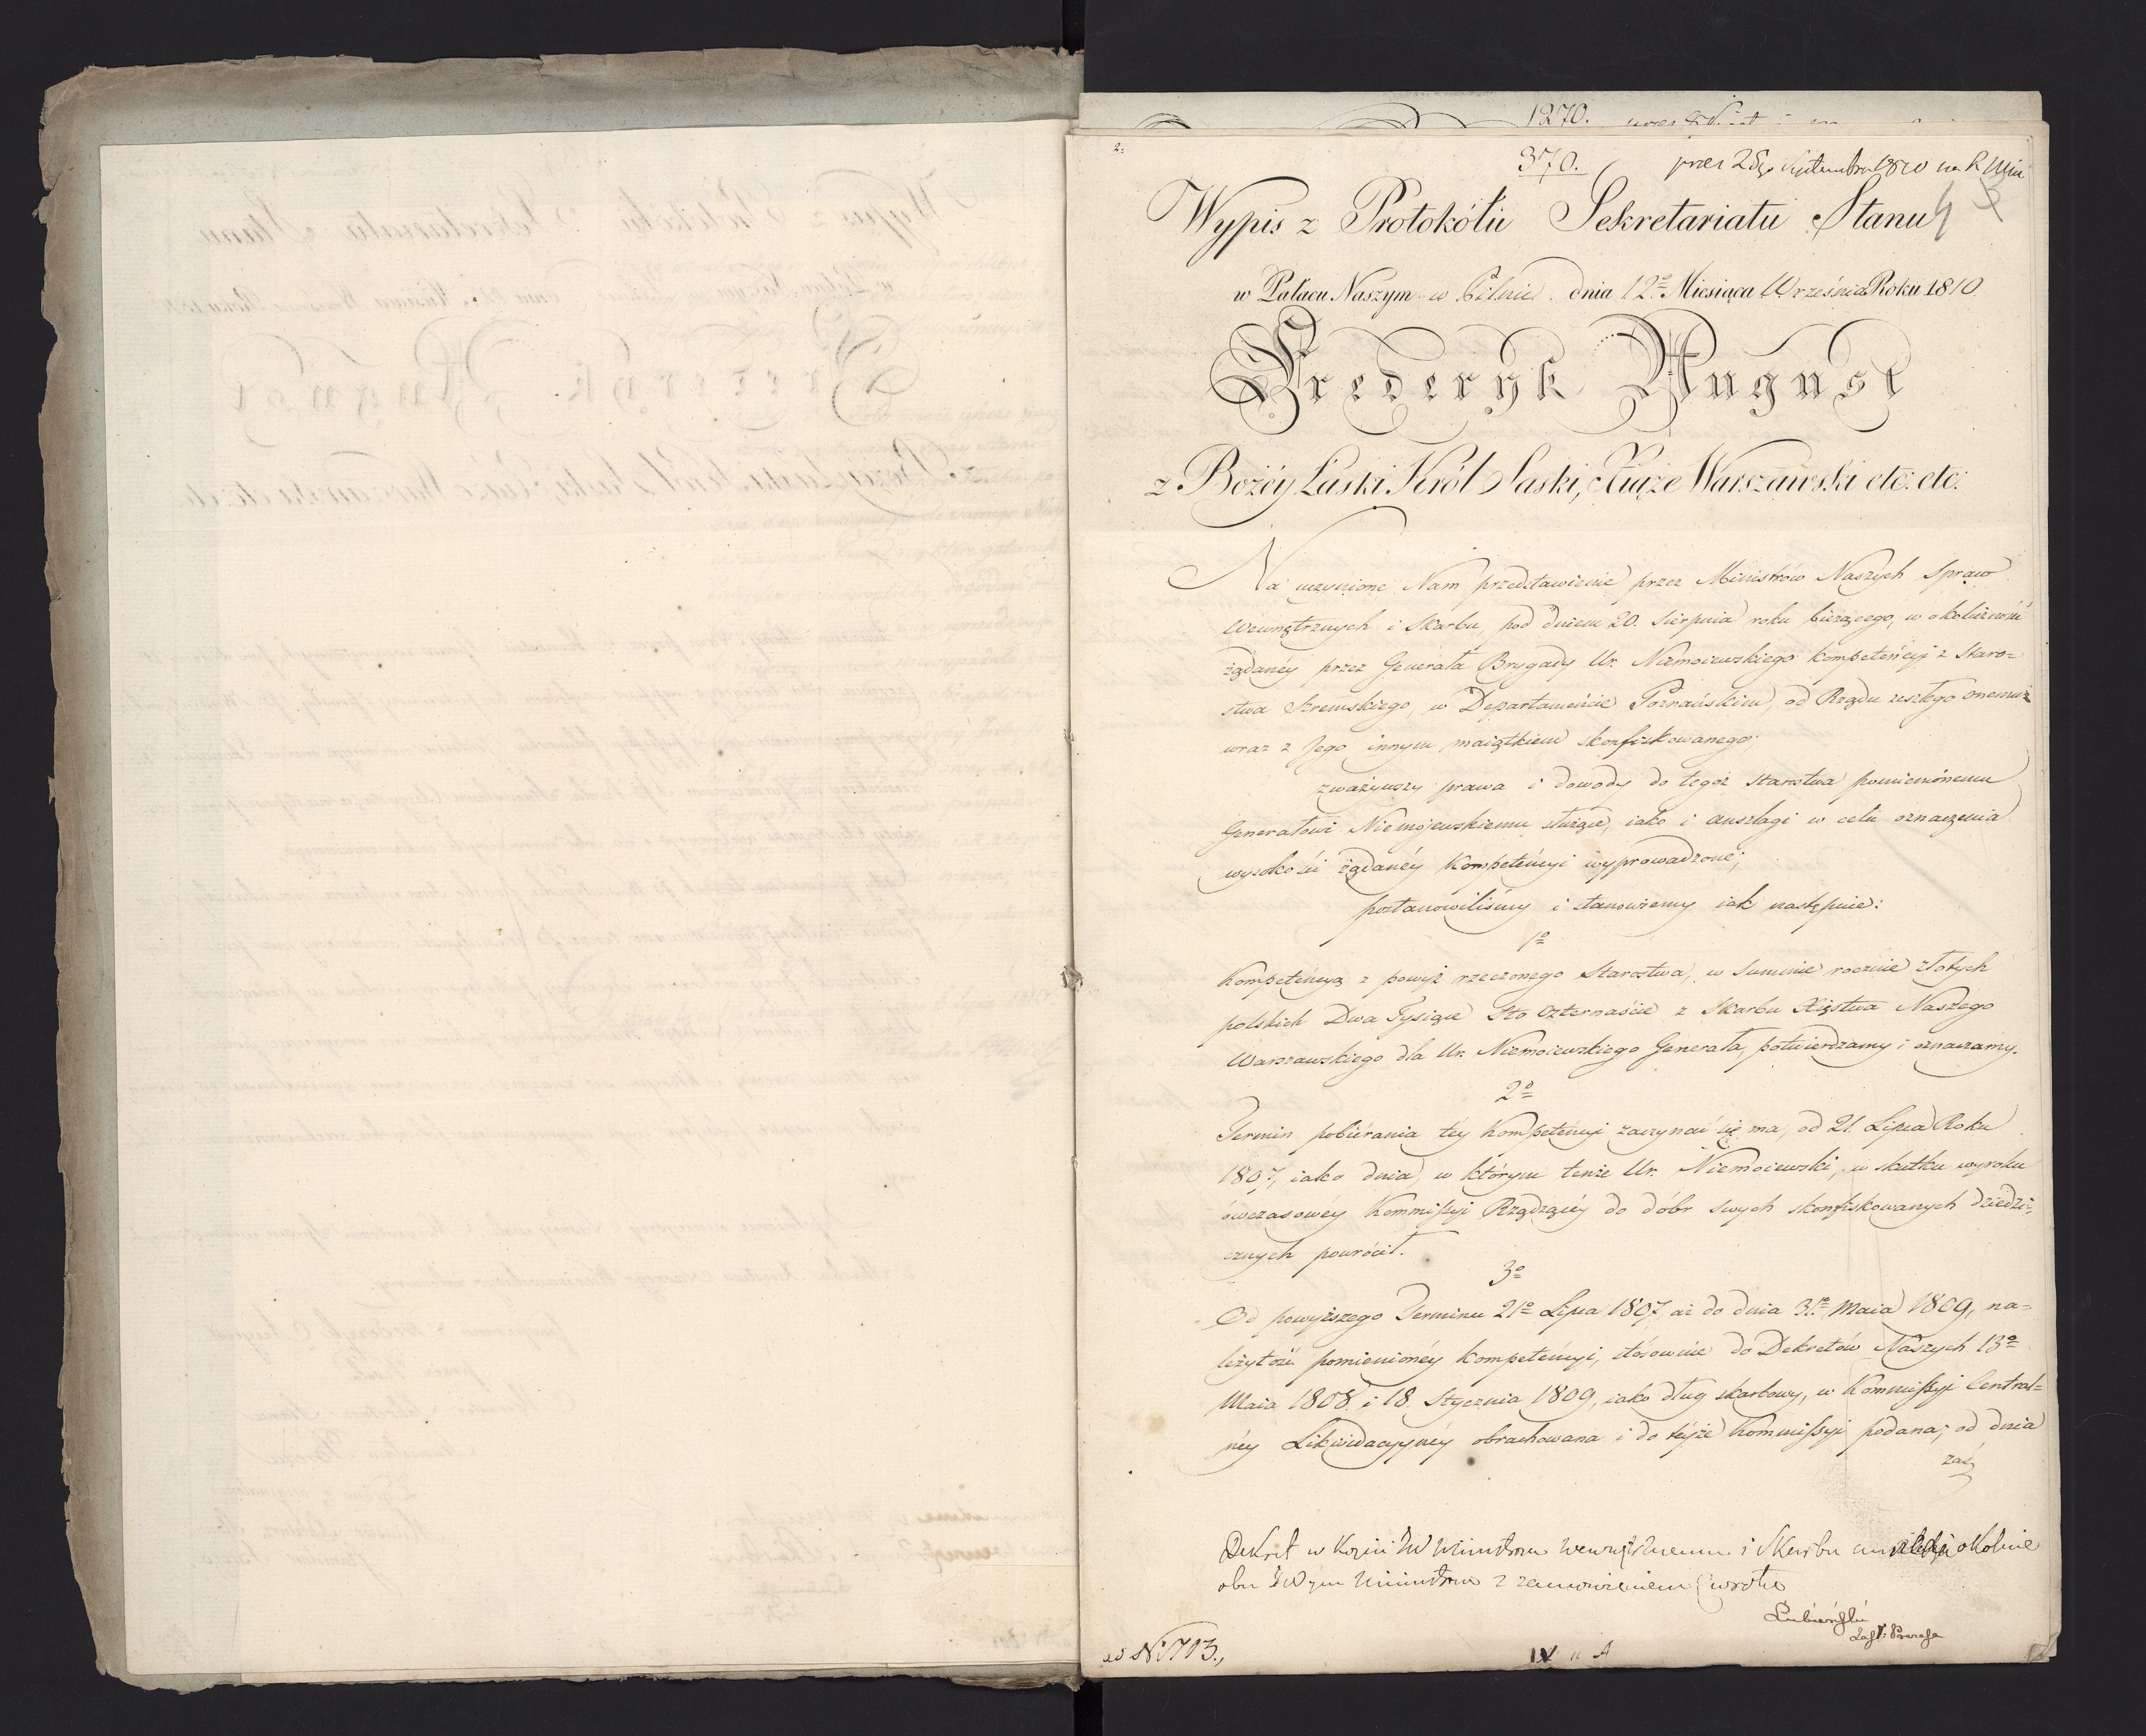 1270.
2.
370. prez 28go Septembra 1810 na R Min
Wypis z Protokółu Sekretariatu Stanu
w Pałacu Naszym w Pilnie dnia 12º Miesiąca Września Roku 1810.
Frederyk August
z Bożéy Łaski Król Saski, Xiąże Warszawski etc: etc:
Na uczynione Nam przedstawienie przez Ministrów Naszych Spraw
Wewnętrznych i Skarbu, pod dniem 20. Sierpnia roku bieżącego, w okoliczności
żądanéy przez Generała Brygady Ur. Niemoiewskiego kompetencyi z Staro=
stwa Szremskiego, w Departamencie Poznańskim, od Rządu zeszłego onemuż
wraz z Jego innym maiątkiem skonfiskowanego;
zważywszy prawa i dowody do tegoż Starostwa pomienionemu
Generałowi Niemojewskiemu służące, iako i anszlagi w celu oznaczenia
wysokości żądanéy Kompetencyi wyprowadzone;
postanowiliśmy i stanowiemy iak następuie:
1º
Kompetencyą z powyż rzeczonego Starostwa, w Summie rocznie złotych
polskich Dwa Tysiące Sto Czternaście z Skarbu Xięstwa Naszego
Warszawskiego dla Ur. Niemoiewskiego Generała, potwierdzamy i oznaczamy.
2º
Termin pobiérania téy Kompetencyi zaczynać się ma, od 21. Lipca Roku
1807, iako dnia, w którym tenże Ur. Niemoiewski, w skutku wyroku
ówczasowéy Kommissyi Rządzącéy do dóbr swych skonfiskowanych dziedzi=
cznych powrócił.
3º
Od powyższego Terminu 21º Lipca 1807, aż do dnia 31º Maia 1809, na=
leżytość pomienionéy kompetencyi, stósownie do Dekretów Naszych 13º
Maia 1808. i 18. Stycznia 1809, iako dług skarbowy, w Kommissyi Central=
néy Likwidacyynéy obrachowana i do téyże Kommissyi podana; od dnia
zaś
Dekret w Kopii W Ministrom Wewnętrznemu i Skarbu okolnie
obu Ministrom z zamowieniem zwrotu
Łubieński
Zast: Prezesa
ad Nº 1713.,
IV u A